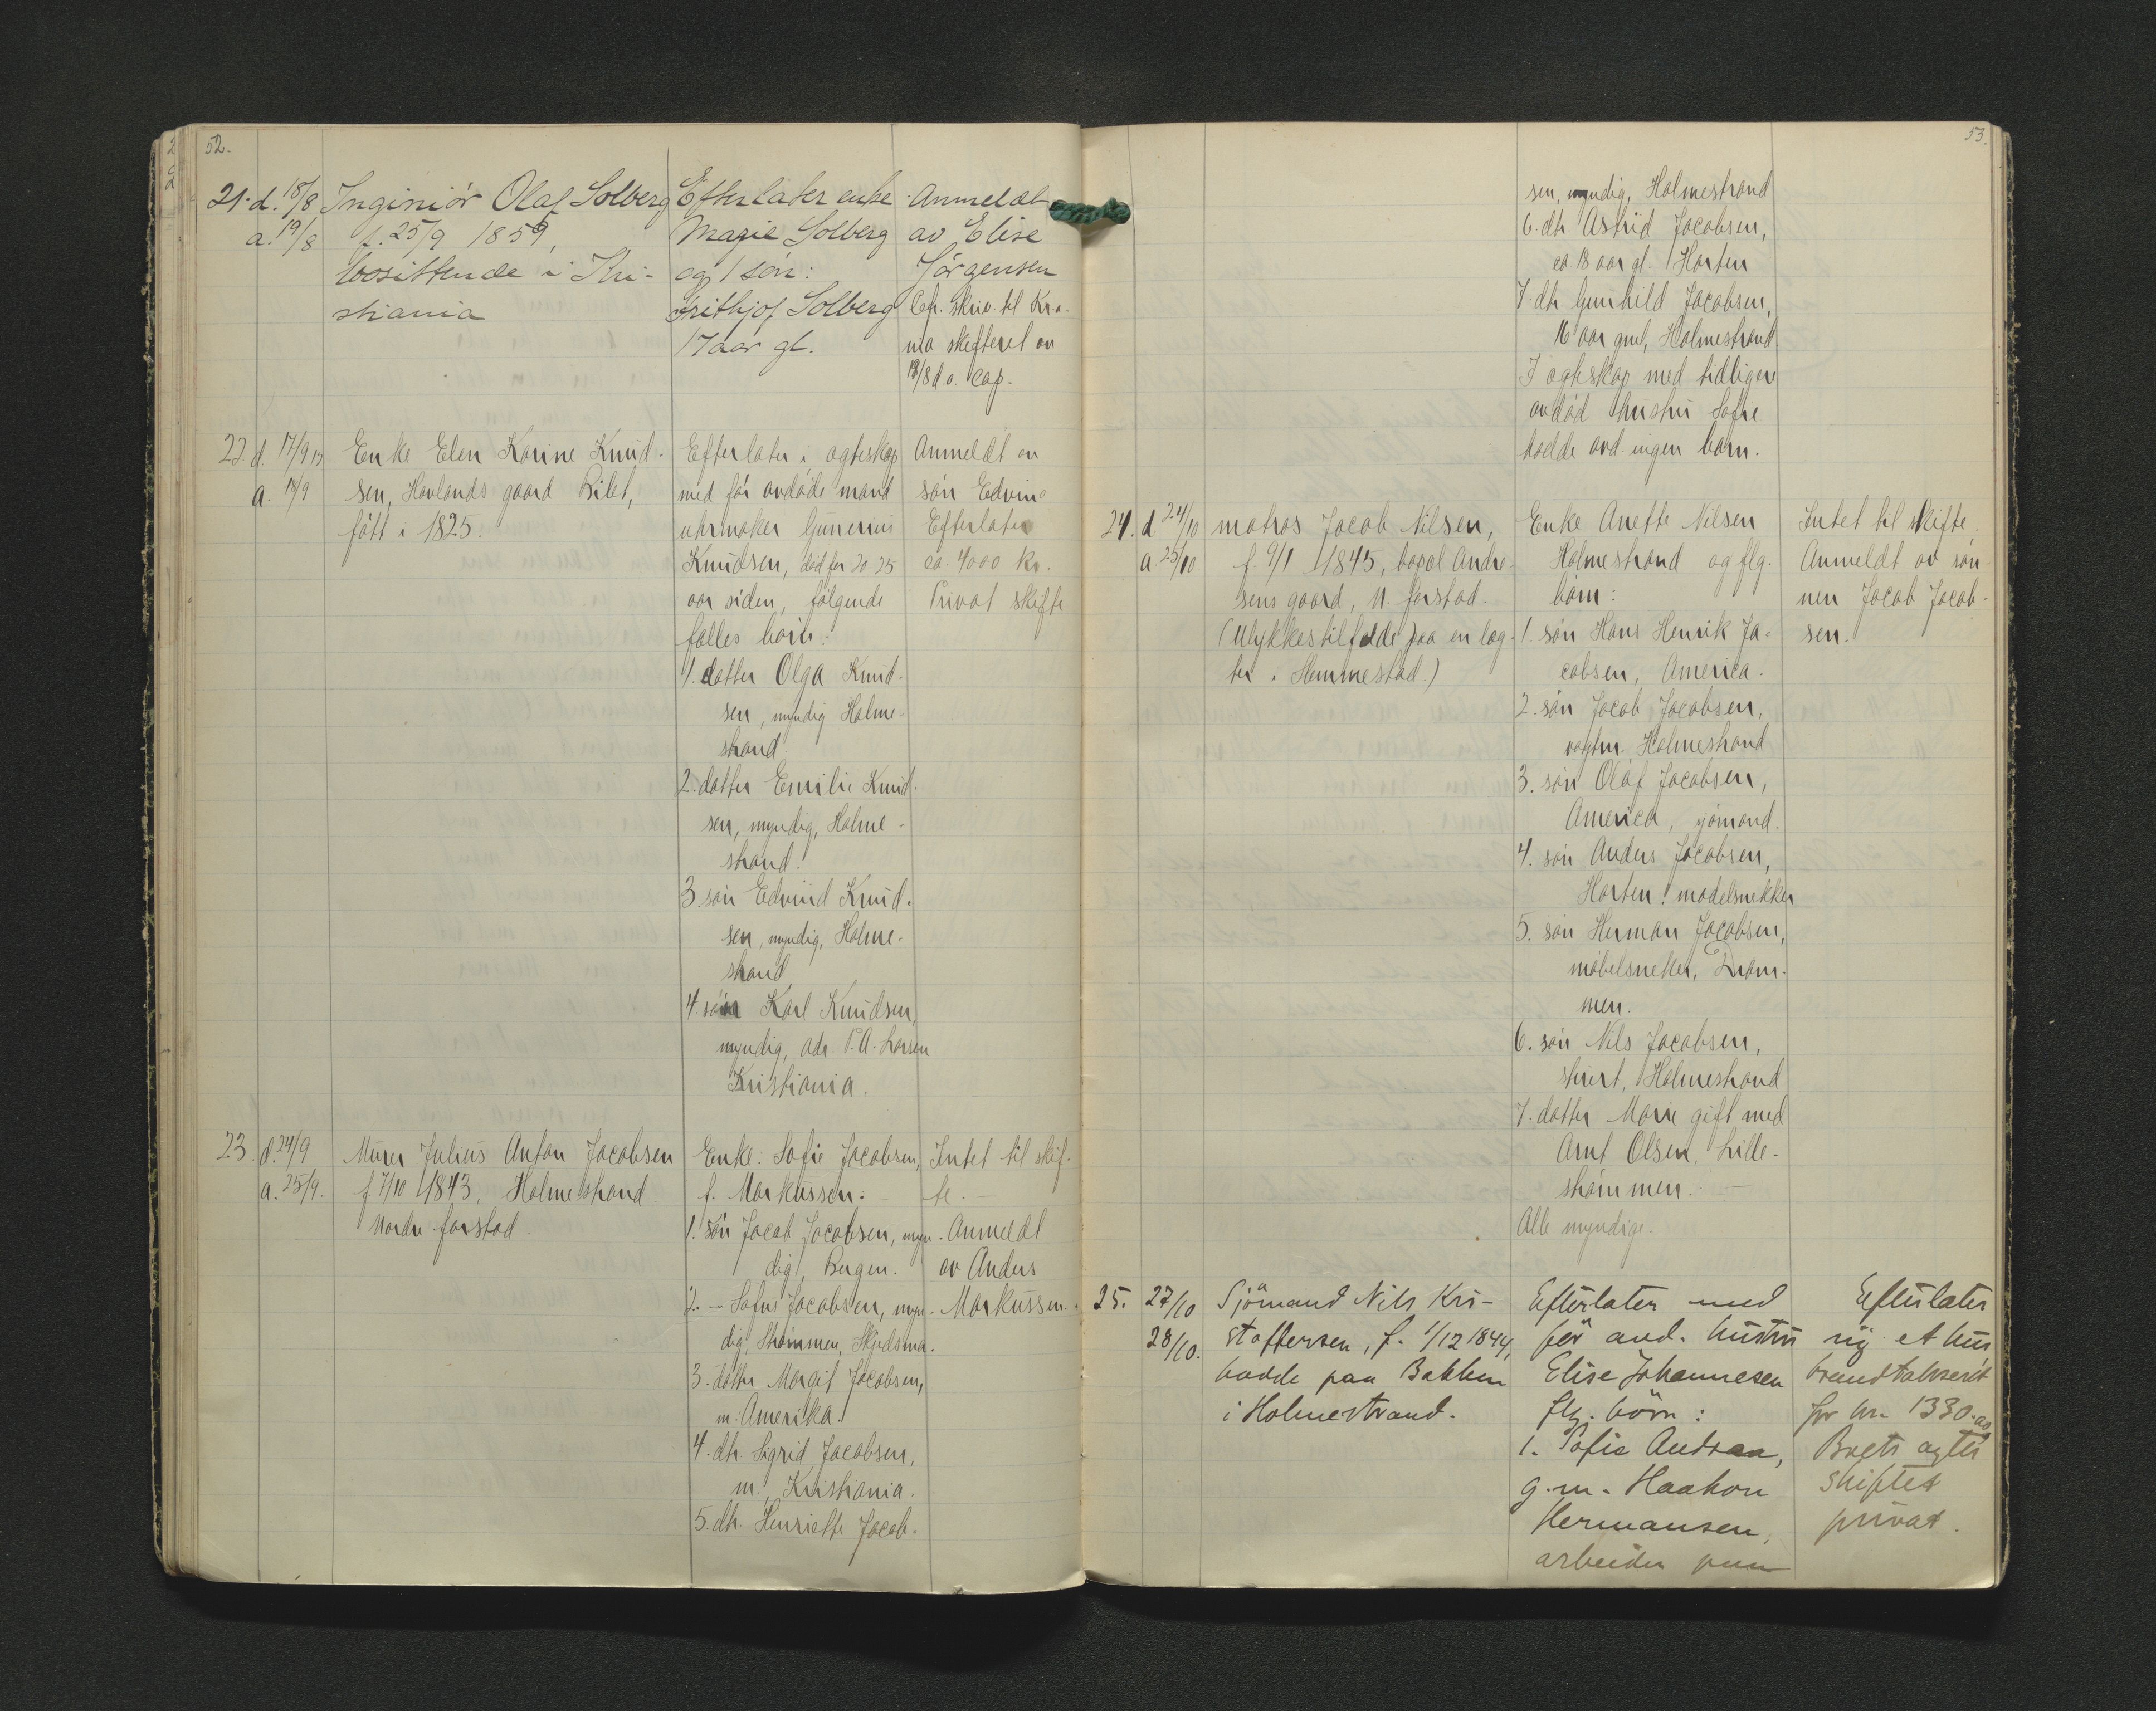 52.
21. d. 18/8
a. 19/8
Inginiör Olaf Solberg
f. 25/9 1859,
bosittende i Kri-
stiania
Efterlater enke
Marie Solberg
og 1 sön:
Frithjof Solberg
17 aar gl.
Anmeldt
av Elise
Jörgensen
Cfr. skriv. til Kr.a.
nia skifteret av
19/8 d.a. cop.
22 d. 17/9 13
a. 18/9
Enke Elen Karine Knud-
sen, Havlands gaard Bilet,
fött i 1825.
Efterlater i egteskap
med för avdöde mand
uhrmaker Gunerius
Knudsen, död for 20-25
aar siden, fölgende
fælles börn:
1. datter Olga Knud-
sen, myndig Holme-
strand.
2. datter Emilie Knud-
sen, myndig, Holme-
strand.
3 sön Edvind Knud-
sen, myndig, Holme-
strand
4. sön Karl Knudsen,
myndig, adr. P.A. Larsen
Kristiania.
Anmeldt av
sön Edvin
Efterlater
ca. 4000 kr.
Privat skifte
23. d. 24/9
a. 25/9.
Murer Julius Anton Jacobsen
f 7/10 1843, Holmestrand
Nordre forstad.
Enke: Sofie Jacobsen,
f. Markussen.
1. Sön Jacob Jacobsen, myn-
dig, Bergen.
2. - Sofus Jacobsen, myn-
dig, Strömmen, Skjedsmo.
3. datter Margit Jacobsen,
m. Amerika.
4. dtr. Sigrid Jacobsen,
m., Kristiania.
5. dtr. Henriette Jacob-
Intet til skif-
te. -
Anmeldt
av Anders
Markussen.
53.
sen, myndig, Holmestrand
6. dtr. Astrid Jacobsen,
ca 18 aar gl. Horten
7. dtr Gunhild Jacobsen,
16 aar gml, Holmestrand.
I egteskap med tidligere
avdöd hustru Sofie
hadde avd. ingen barn.
24. d 24/10
a 25/10.
matros Jacob Nilsen,
f. 9/1 1845, bopæl Andre-
sens gaard, N. forstad.
(Ulykkestilfælde paa en læg-
ter i Hemmestad.)
Enke Anette Nilsen
Holmestrand og flg.
börn:
1. sön Hans Henrik Ja-
cobsen, America.
2. sön Jacob Jacobsen,
vagtm. Holmestrand
3. sön Olaf Jacobsen,
America, sjömand.
4. sön Anders Jacobsen,
Horten. modelsnekker
5. sön Herman Jacobsen,
möbelsnekker, Dram-
men.
6. sön Nils Jacobsen,
stuert, Holmestrand
7. datter Marie gift med
Arnt Olsen, Lille-
strömmen. -
Alle myndige.
Intet til skifte.
Anmeldt av sön-
nen Jacob Jacob-
sen.
25. 27/10
28/10.
Sjömand Nils Kri-
stoffersen, f. 1/12 1844,
bodde paa Bakken
i Holmestrand.
Efterlater med
för avd. hustru
Elise Johannesen
flg. börn:
1. Sofie Andrea,
g.m. Haakon
Hermansen,
arbeider paa
Efterlater
sig et hus
brandtakseret
for kr. 1330.00
Boets agtes
skiftet
privat.